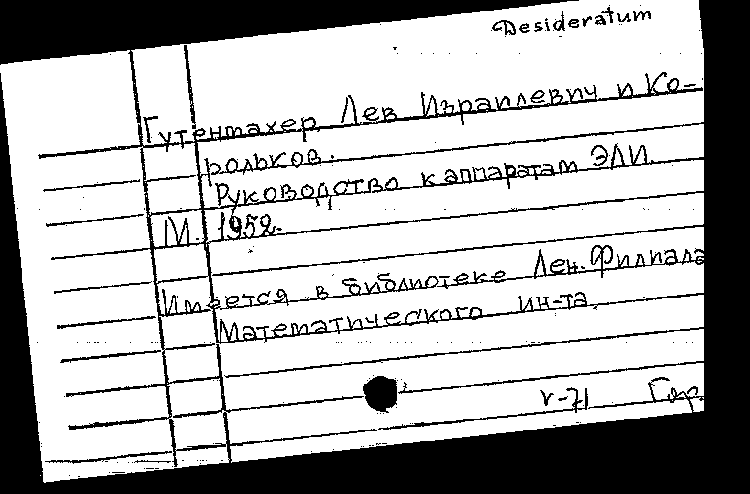 Desideratum
Гутенмахер Лев Израилевич и Ко-
рольков.
Руководство к аппаратам ЭЛИ.
М. 1952.
Имеется в библиотеке Лен. Филиала
Математического ин-та.
V-71